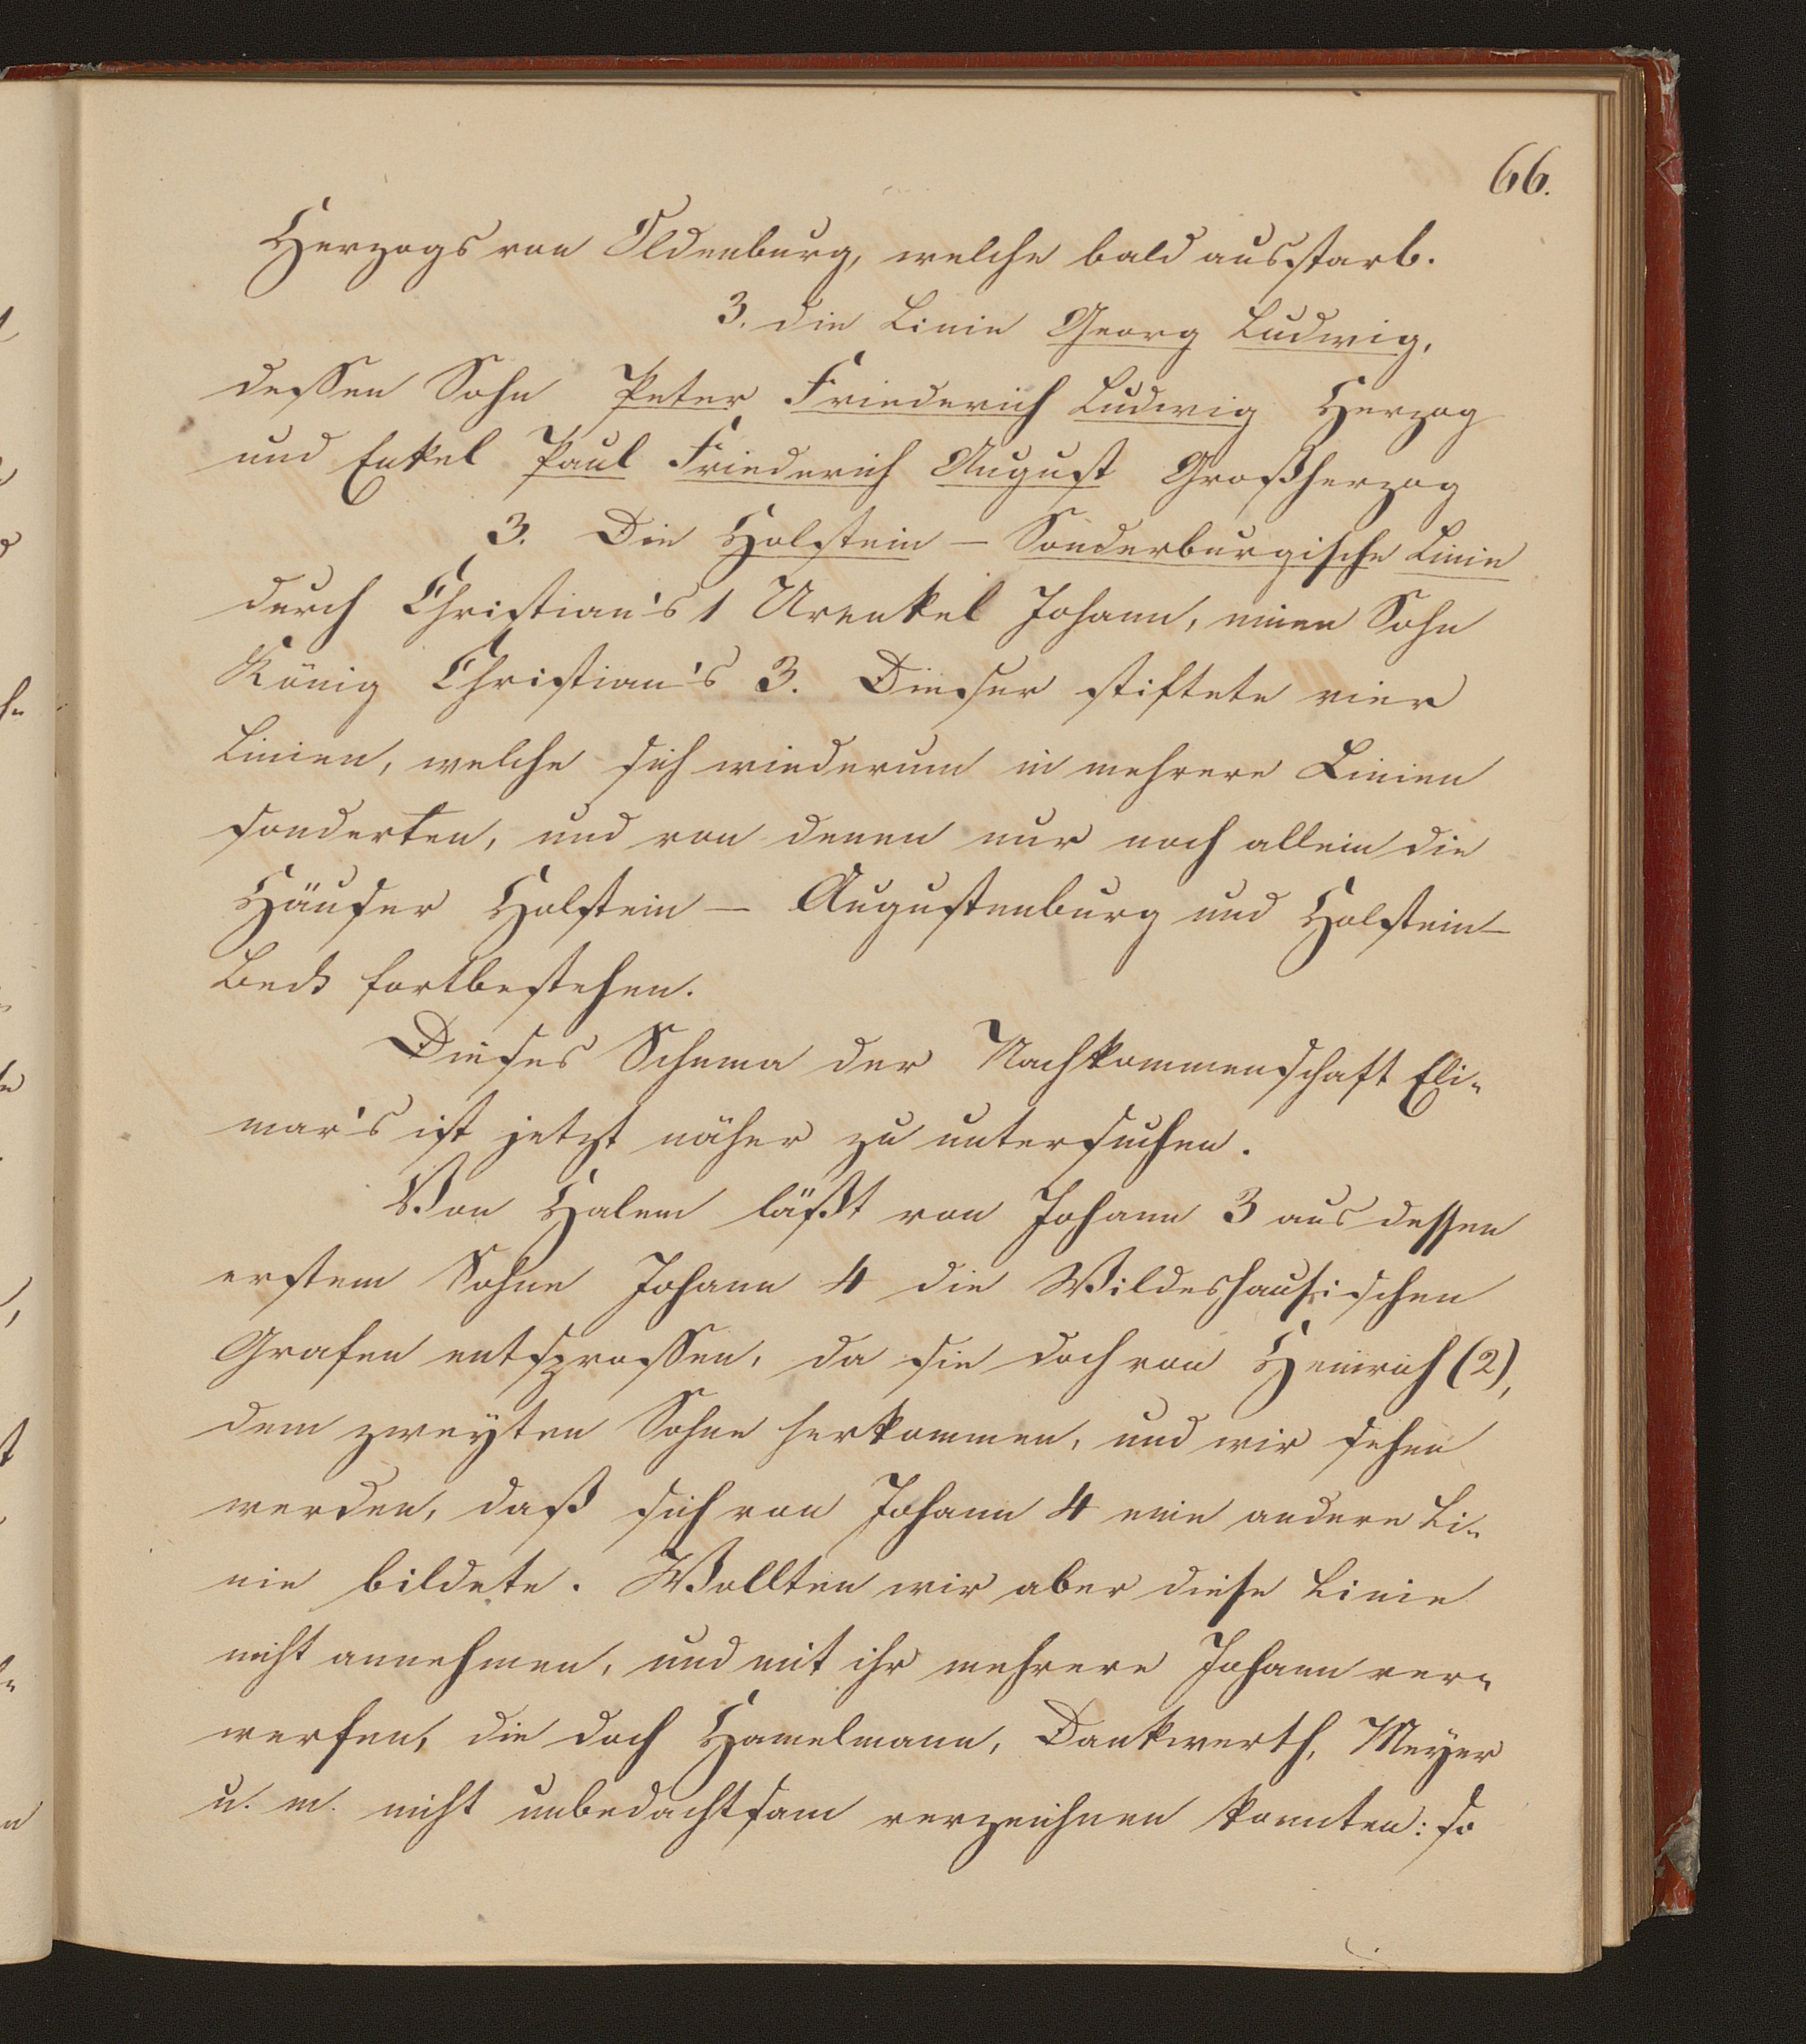 66.
Herzogs von Oldenburg, welche bald ausstarb.
3. die Linie Georg Ludwig,
dessen Sohn Peter Friederich Ludwig Herzog
und Enkel Paul Friederich August Großherzog
3. Die Holstein – Sonderburgische Linie
durch Christian's 1 Urenkel Johann, einen Sohn
König Christian's 3. Dieser stiftete vier
Linien, welche sich wiederum in mehrere Linien
sonderten, und von denen nur noch allein die
Häuser Holstein – Augustenburg und Holstein–
Beck fortbestehen.
Dieses Schema der Nachkommenschaft Eli-
mar's ist jetzt näher zu untersuchen.
Von Halem läßt von Johann 3 aus dessen
erstem Sohne Johann 4 die Wildeshausischen
Grafen entsprossen, da sie doch von Heinrich (2),
dem zweyten Sohne herkommen, und wir sehen
werden, daß sich von Johann 4 eine andere Li-
nie bildete. Wollten wir aber diese Linie
nicht annehmen, und mit ihr mehrere Johann ver-
werfen, die doch Hamelmann, Dankwerth, Meyer
u. m. nicht unbedachtsam verzeichnen konnten: so